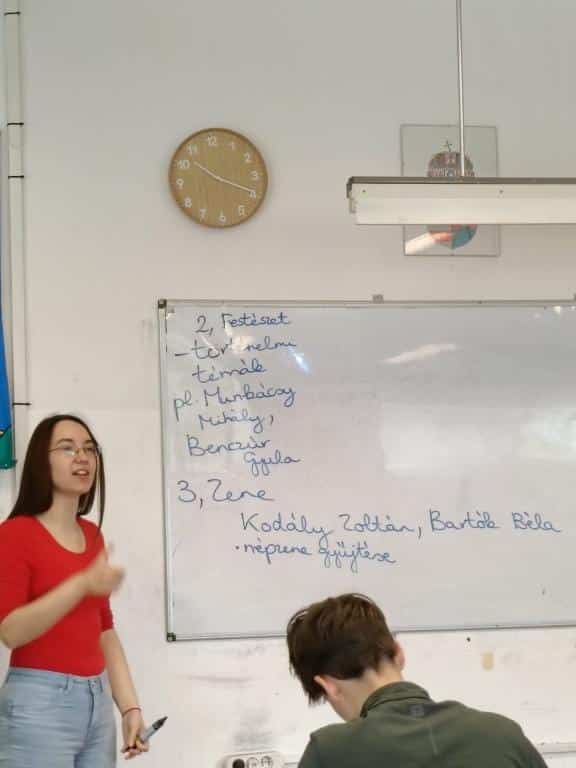 12
1
2
3
4
5
6
7
8
9
10
11
2, Festészet
- történelmi
témák
pl. Munkácsy
Mihály,
Benczúr
Gyula
3, Zene
Kodály Zoltán, Bartók Béla
• népzene gyűjtése